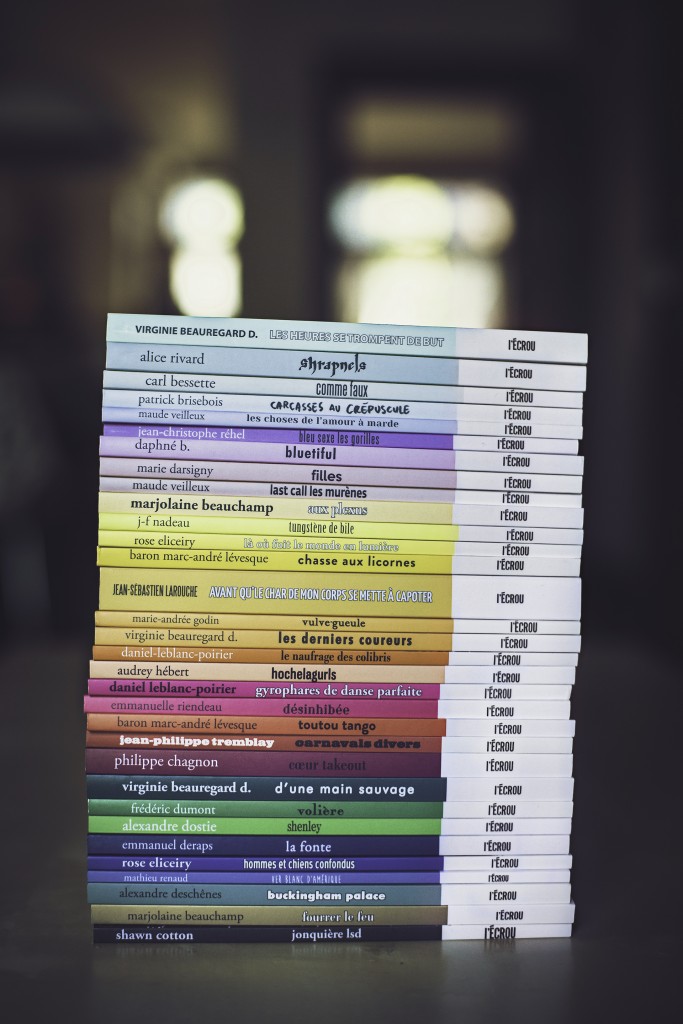 VIRGINIE BEAUREGARD D. LES HEURES SE TROMPENT DE BUT l'ÉCROU
alice rivard shrapnels l'ÉCROU
carl bessette comme faux l'ÉCROU
patrick brisebois CARCASSES AU CRÉPUSCULE l'ÉCROU
maude veilleux les choses de l'amour à marde l'ÉCROU
jean-christophe réhel bleu sexe les gorilles l'ÉCROU
daphné b. bluetiful l'ÉCROU
marie darsigny filles l'ÉCROU
maude veilleux last call les murènes l'ÉCROU
marjolaine beauchamp aux plexus l'ÉCROU
j-f nadeau tungstène de bile l'ÉCROU
rose eliceiry là où fuit le monde en lumière l'ÉCROU
baron marc-andré lévesque chasse aux licornes l'ÉCROU
JEAN-SÉBASTIEN LAROUCHE AVANT QU'LE CHAR DE MON CORPS SE METTE À CAPOTER l'ÉCROU
marie-andrée godin vulvegueule l'ÉCROU
virginie beauregard d. les derniers coureurs l'ÉCROU
daniel-leblanc-poirier le naufrage des colibris l'ÉCROU
audrey hébert hochelagurls l'ÉCROU
daniel leblanc-poirier gyrophares de danse parfaite l'ÉCROU
emmanuelle riendeau désinhibée l'ÉCROU
baron marc-andré lévesque toutou tango l'ÉCROU
jean-philippe tremblay carnavals divers l'ÉCROU
philippe chagnon cœur takeout l'ÉCROU
virginie beauregard d. d'une main sauvage l'ÉCROU
frédéric dumont volière l'ÉCROU
alexandre dostie shenley l'ÉCROU
emmanuel deraps la fonte l'ÉCROU
rose eliceiry hommes et chiens confondus l'ÉCROU
mathieu renaud VER BLANC D'AMÉRIQUE l'ÉCROU
alexandre deschênes buckingham palace l'ÉCROU
marjolaine beauchamp fourrer le feu l'ÉCROU
shawn cotton jonquière lsd l'ÉCROU